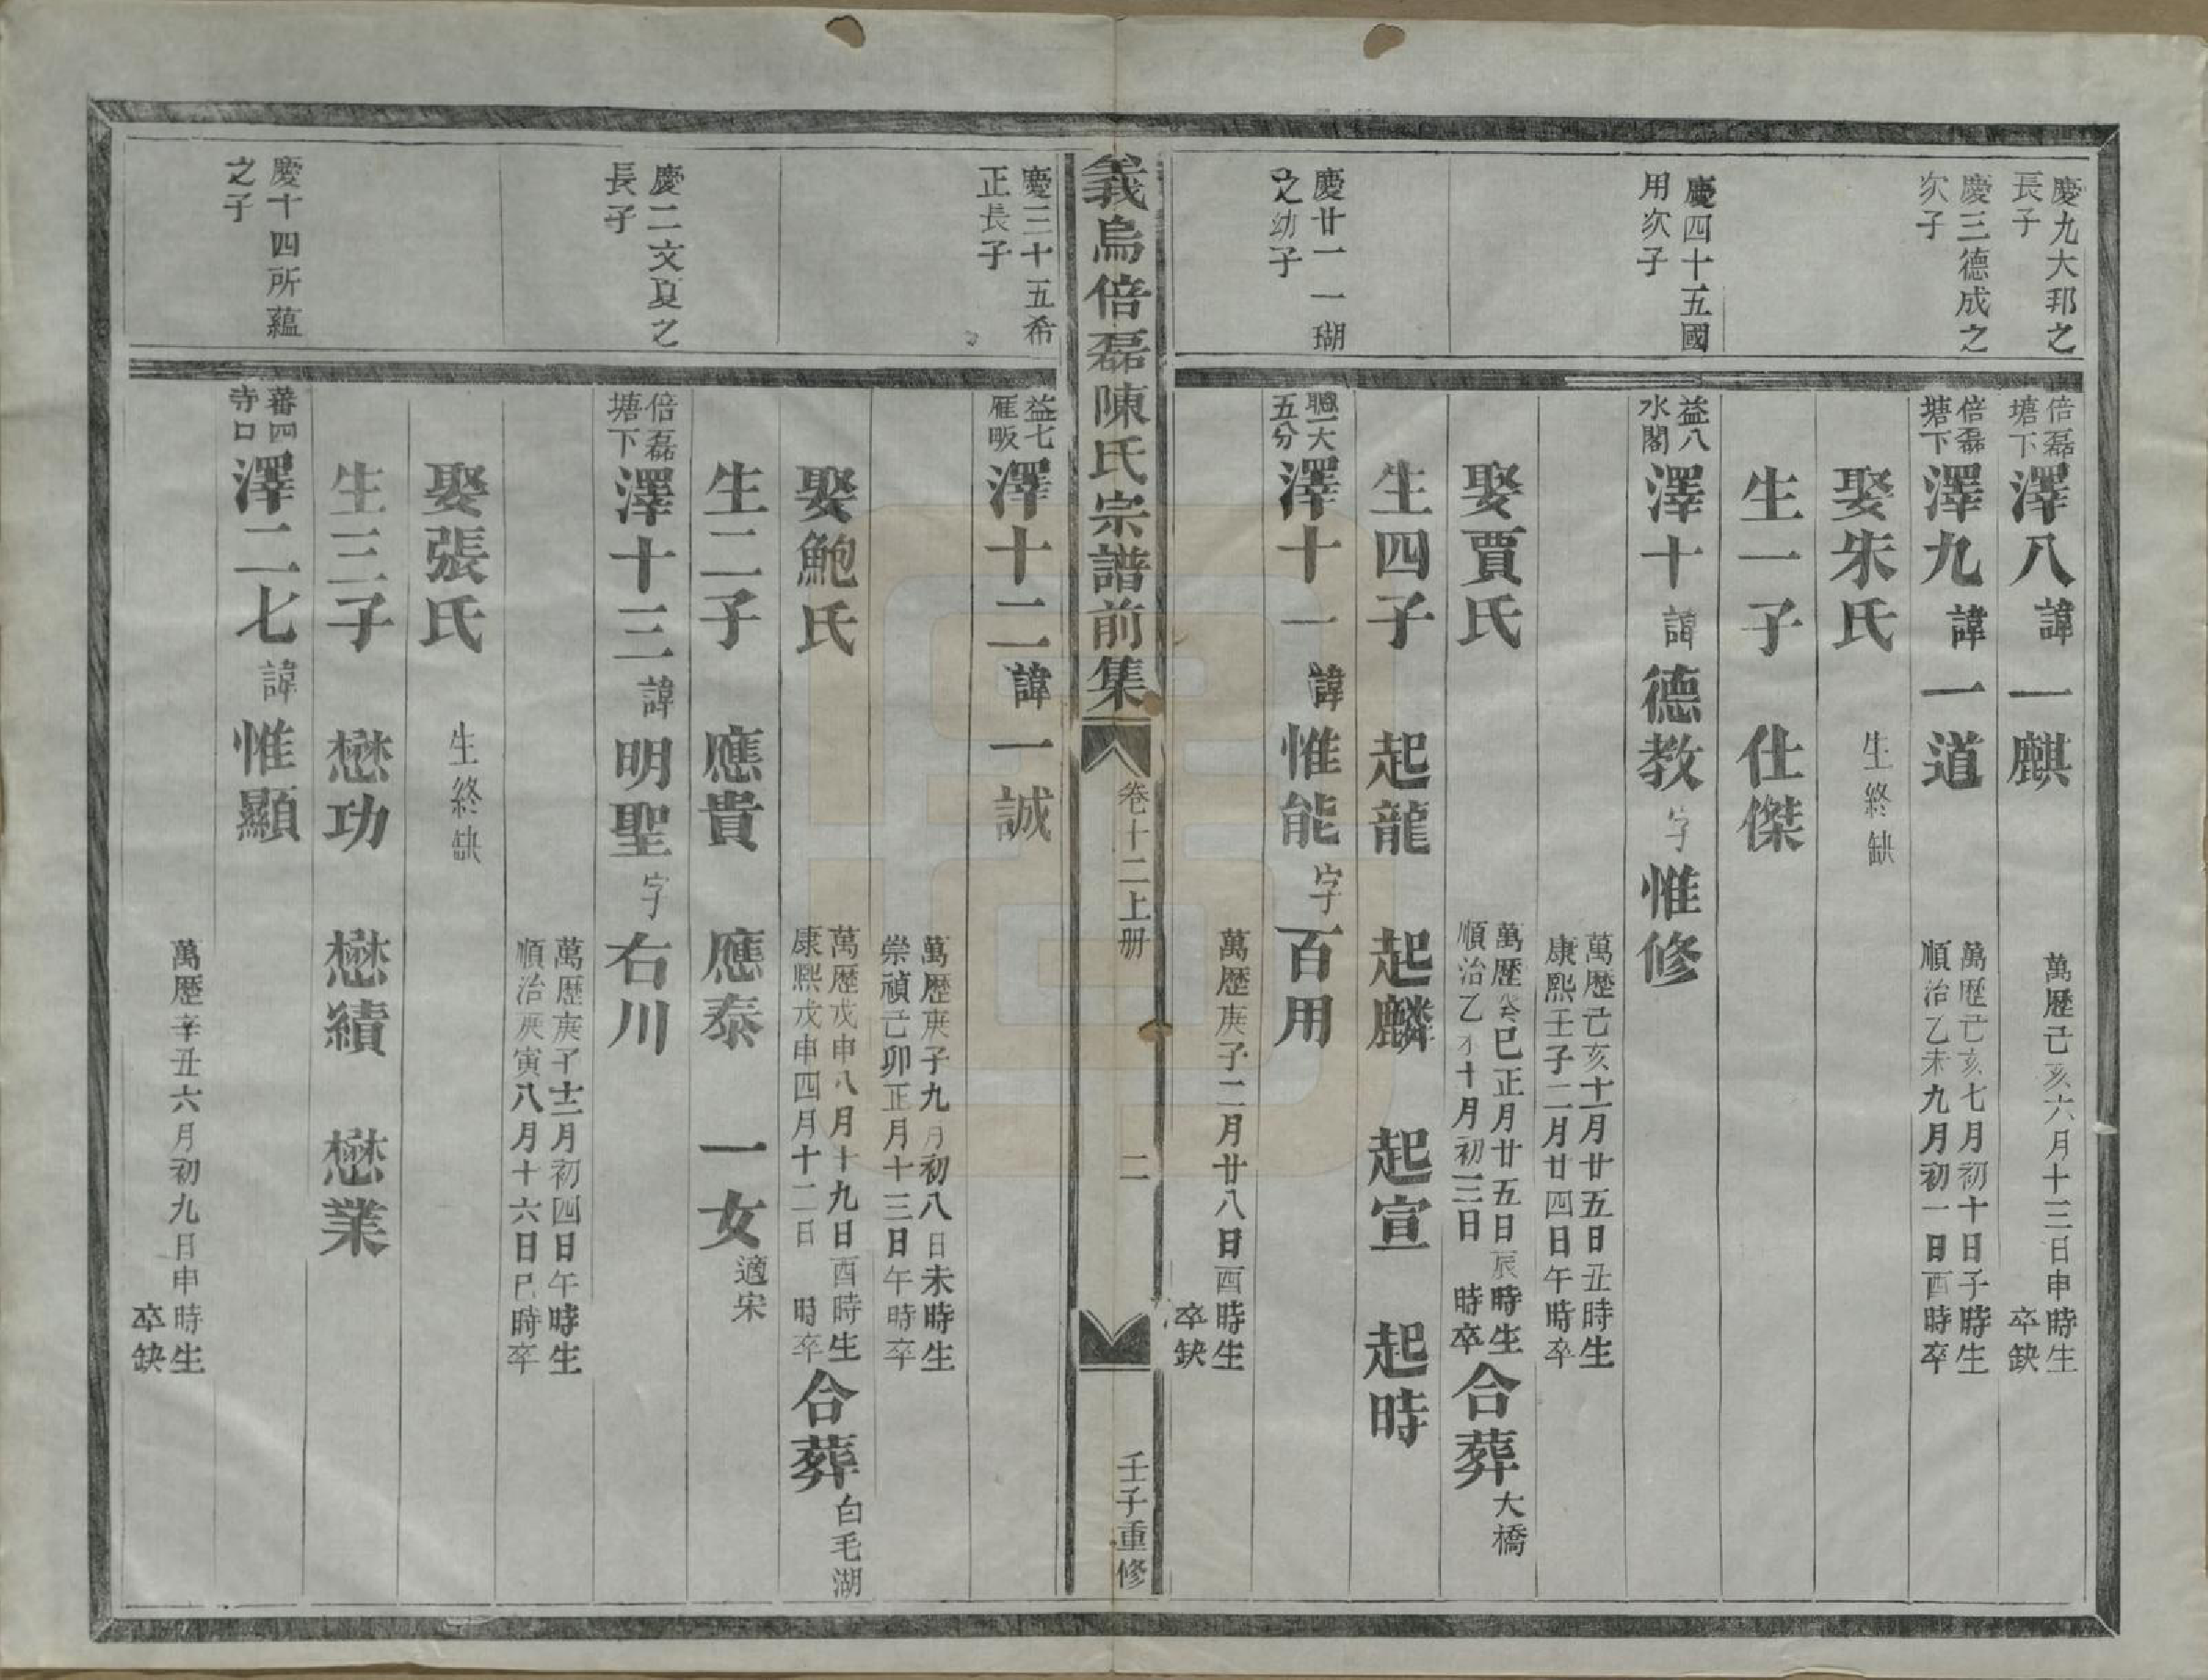 慶九大邦之
長子
倍磊
塘下
澤八 諱 一麒
萬歷己亥六月十三日申時生
卒缺
慶三德成之
次子
倍磊
塘下
澤九 諱 一道
萬歷己亥七月初十日子時生
順治乙未九月初一日酉時卒
娶朱氏 生終缺
生一子 仕傑
慶四十五國
用次子
益八
水閣
澤十 諱 德教 字 惟修
萬歷己亥十一月廿五日丑時生
康熙壬子二月廿四日午時卒
娶賈氏
萬歷癸巳正月廿五日辰時生
順治乙 十月初三日 時卒
合葬 大橋
生四子 起龍 起麟 起宣 起時
慶廿一一瑚
之幼子
聽一大
五分
澤十一 諱 惟能 字 百用
萬歷庚子二月廿八日酉時生
卒缺
義烏倍磊陳氏宗譜前集
卷十二上册
二
壬子重修
慶三十五希
正長子
益七
雁畈
澤十二 諱 一誠
萬歷庚子九月初八日未時生
崇禎己卯正月十三日午時卒
娶鮑氏
萬歷戊申八月十九日酉時生
康熙戊申四月十二日 時卒
合葬 白毛湖
生二子 應貴 應泰 一女 適宋
慶二文夏之
長子
倍磊
塘下
澤十三 諱 明聖 字 右川
萬歷庚子十二月初四日午時生
順治庚寅八月十六日巳時卒
娶張氏 生終缺
生三子 懋功 懋績 懋業
慶十四所蘊
之子
蕃四
寺口
澤二七 諱 惟顯
萬歷辛丑六月初九日申時生
卒缺